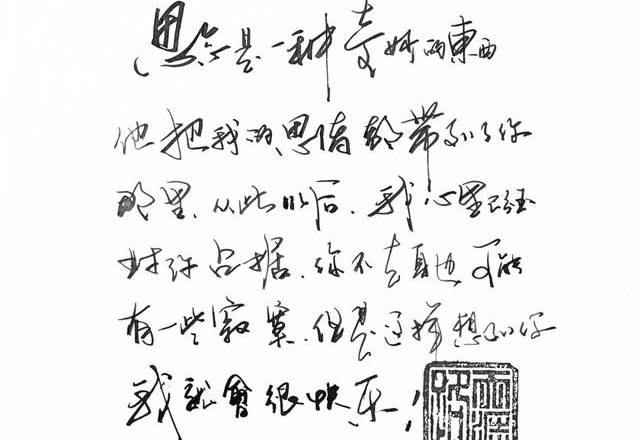 思念是一种奇妙的東西
他把我的思情都帶到了你
那里.从此以后.我心里已经
被你占据.你不在身边可能
有一些寂寞.但是这样想到你
我就會很快乐!